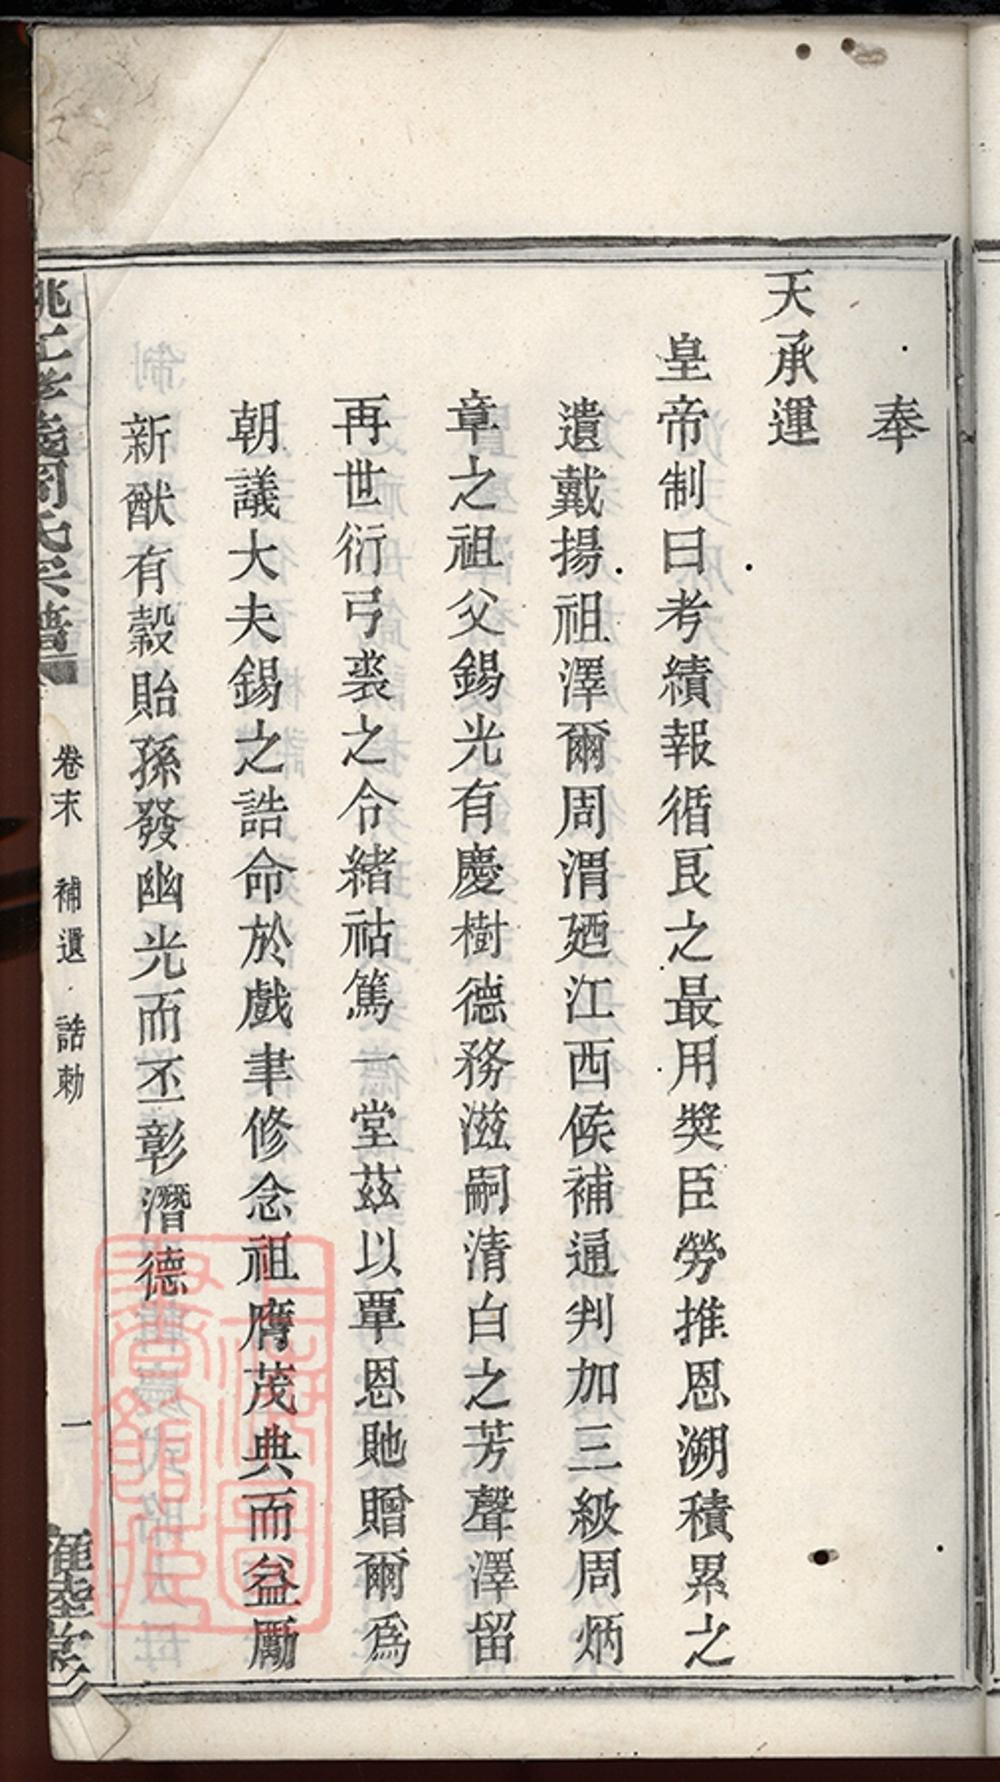 奉
天承運
皇帝制曰考績報循良之最用獎臣勞推恩溯積累之
遺戴揚祖澤爾周渭廼江西候補通判加三級周炳
章之祖父錫光有慶樹德務滋嗣清白之芳聲澤留
再世衍弓裘之令緒祜篤一堂茲以覃恩貤贈爾爲
朝議大夫錫之誥命於戲聿修念祖膺茂典而益勵
新猷有穀貽孫發幽光而丕彰潛德
姚江孝義周氏宗譜
卷末 補遺 誥勅
一
上海圖書館藏